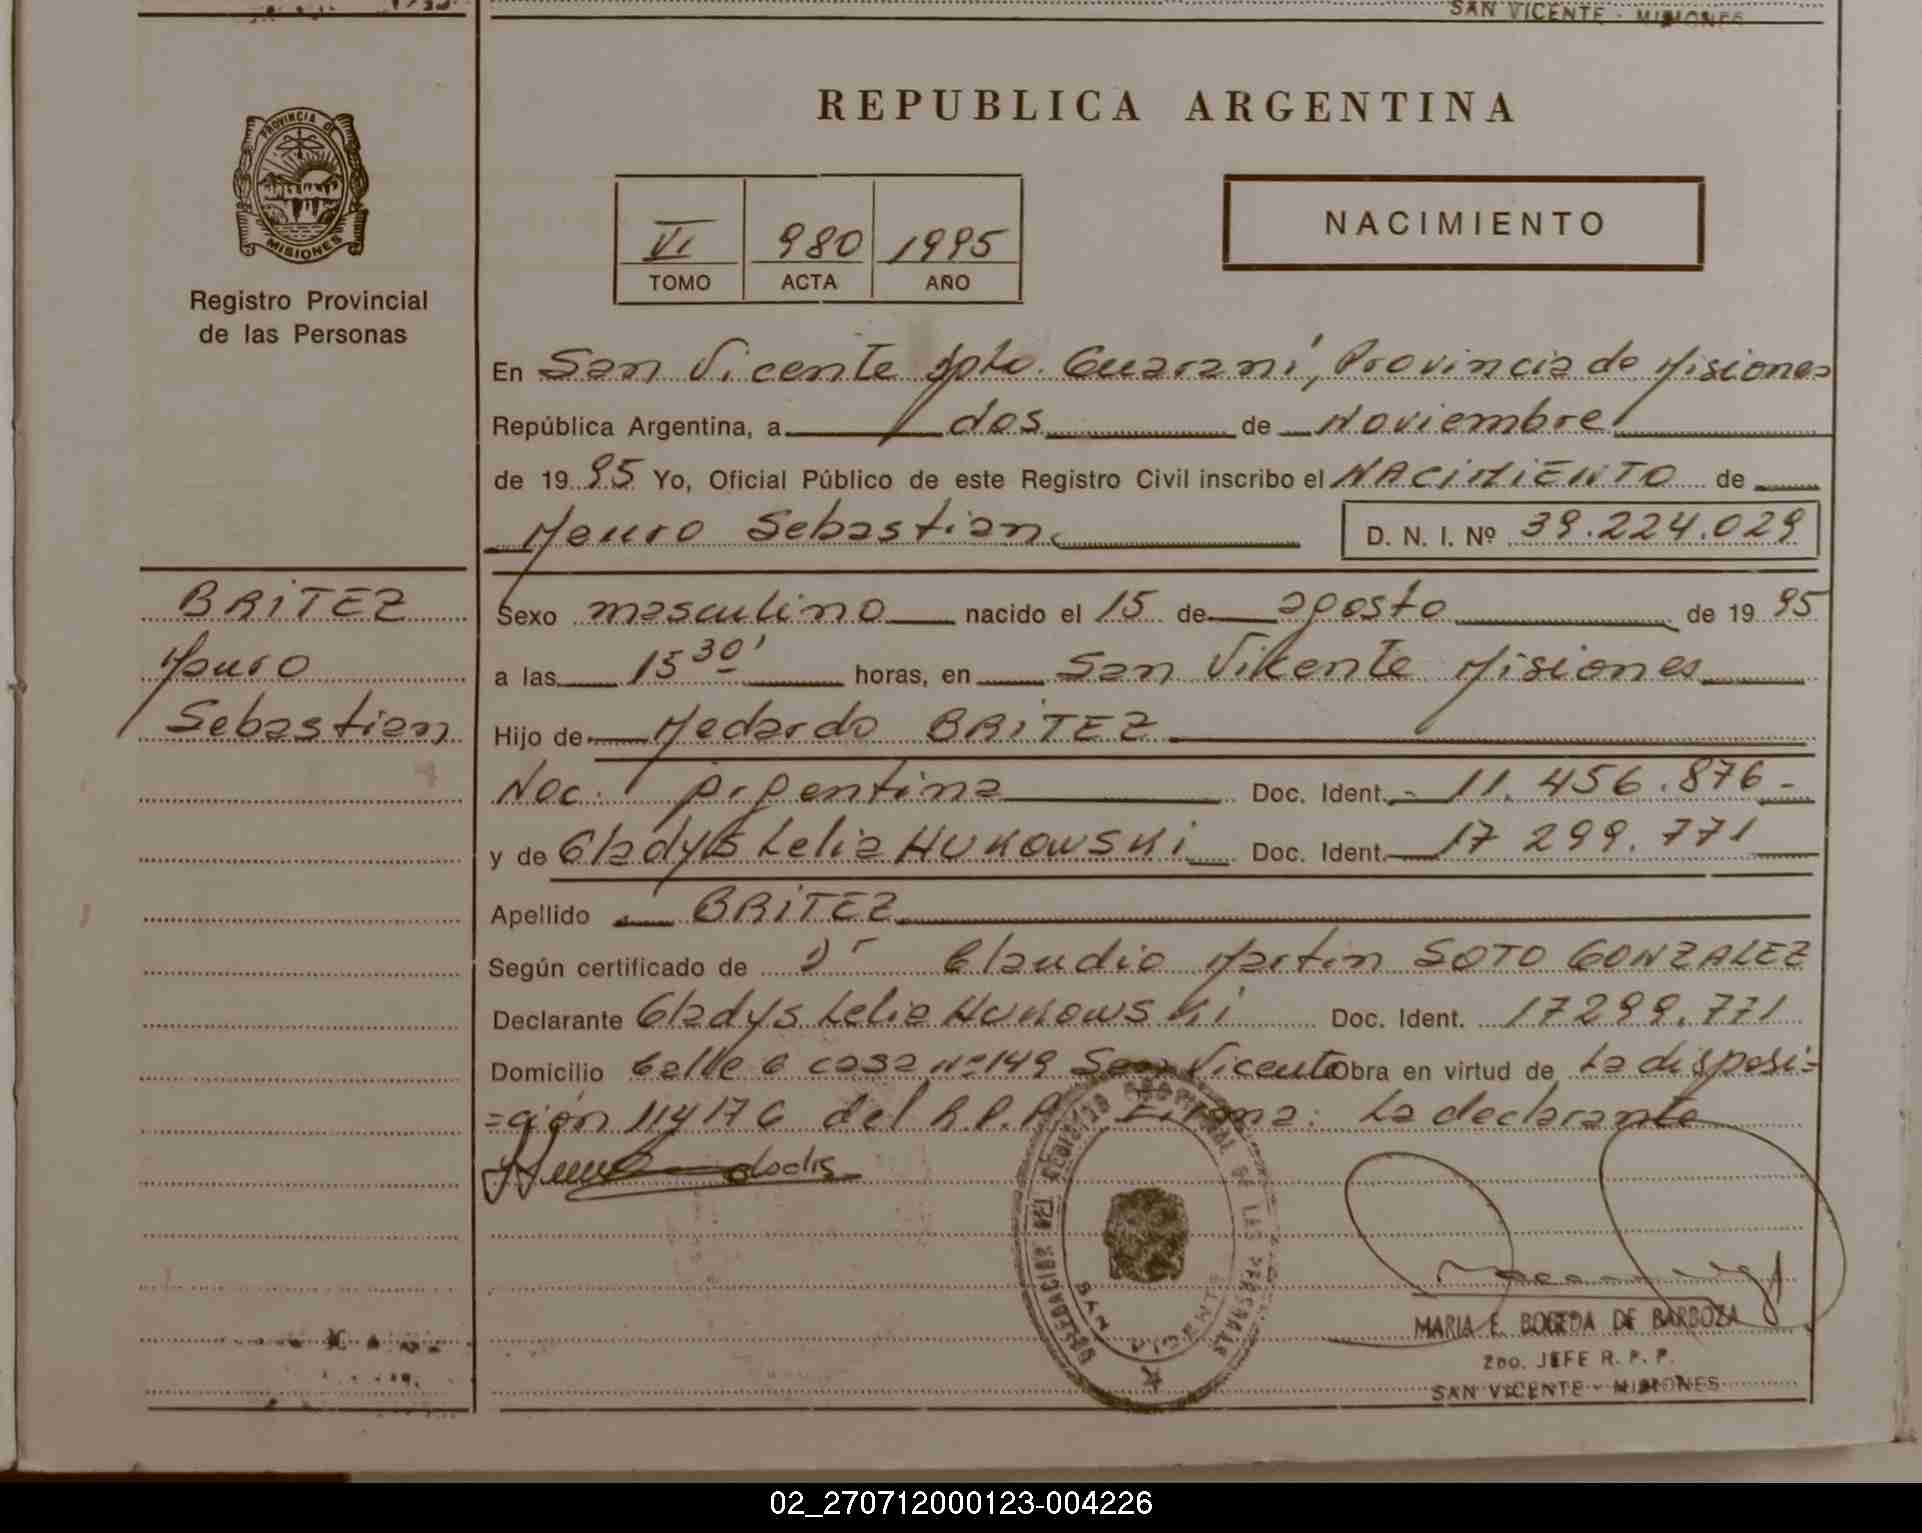 SAN VICENTE - MISIONES
PROVINCIA DE
MISIONES
Registro Provincial
de las Personas
REPUBLICA ARGENTINA
VI 980 1995
TOMO ACTA AÑO
NACIMIENTO
En San Vicente Dpto. Guaraní, Provincia de Misiones
República Argentina, a dos de Noviembre
de 19 95 Yo, Oficial Público de este Registro Civil inscribo el NACIMIENTO de
Mauro Sebastian D. N. I. Nº 39.224.029
BRITEZ
Mauro
Sebastian
Sexo masculino nacido el 15 de agosto de 19 95
a las 15 30' horas, en San Vicente Misiones
Hijo de Medardo BRITEZ
Nac. Argentina Doc. Ident. 11.456.876-
y de Gladys Lelia HUKOWSKI Doc. Ident. 17 299.771
Apellido BRITEZ
Según certificado de Dr Claudio Martin SOTO GONZALEZ
Declarante Gladys Lelia HUKOWSKI Doc. Ident. 17299.771
Domicilio Calle 6 casa nº 149 San Vicente Obra en virtud de La disposi=
=ción 114176 del R.P.P. Firma: La declarante
DELEGACION REGISTRO PROVINCIAL DE LAS PERSONAS
SAN VICENTE
MARIA E. BOGEDA DE BARBOZA
2DO. JEFE R. P. P.
SAN VICENTE - MISIONES
02_270712000123-004226